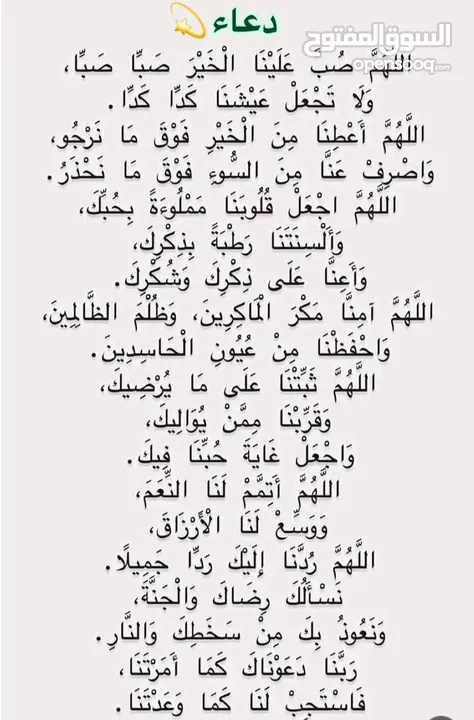 دعاء
السوق المفتوح
opensooq.com
اللَّهُمَّ صُبَّ عَلَيْنَا الْخَيْرَ صَبًّا صَبًّا،
وَلَا تَجْعَلْ عَيْشَنَا كَدًّا كَدًّا.
اللَّهُمَّ أَعْطِنَا مِنَ الْخَيْرِ فَوْقَ مَا نَرْجُو،
وَاصْرِفْ عَنَّا مِنَ السُّوءِ فَوْقَ مَا نَحْذَرُ.
اللَّهُمَّ اجْعَلْ قُلُوبَنَا مَمْلُوءَةً بِحُبِّكَ،
وَأَلْسِنَتَنَا رَطْبَةً بِذِكْرِكَ،
وَأَعِنَّا عَلَى ذِكْرِكَ وَشُكْرِكَ.
اللَّهُمَّ آمِنَّا مَكْرَ الْمَاكِرِينَ، وَظُلْمَ الظَّالِمِينَ،
وَاحْفَظْنَا مِنْ عُيُونِ الْحَاسِدِينَ.
اللَّهُمَّ ثَبِّتْنَا عَلَى مَا يُرْضِيكَ،
وَقَرِّبْنَا مِمَّنْ يُوَالِيكَ،
وَاجْعَلْ غَايَةَ حُبِّنَا فِيكَ.
اللَّهُمَّ أَتِمَّمْ لَنَا النِّعَمَ،
وَوَسِّعْ لَنَا الْأَرْزَاقَ،
اللَّهُمَّ رُدَّنَا إِلَيْكَ رَدًّا جَمِيلًا.
نَسْأَلُكَ رِضَاكَ وَالْجَنَّةَ،
وَنَعُوذُ بِكَ مِنْ سَخَطِكَ وَالنَّارِ.
رَبَّنَا دَعَوْنَاكَ كَمَا أَمَرْتَنَا،
فَاسْتَجِبْ لَنَا كَمَا وَعَدْتَنَا.